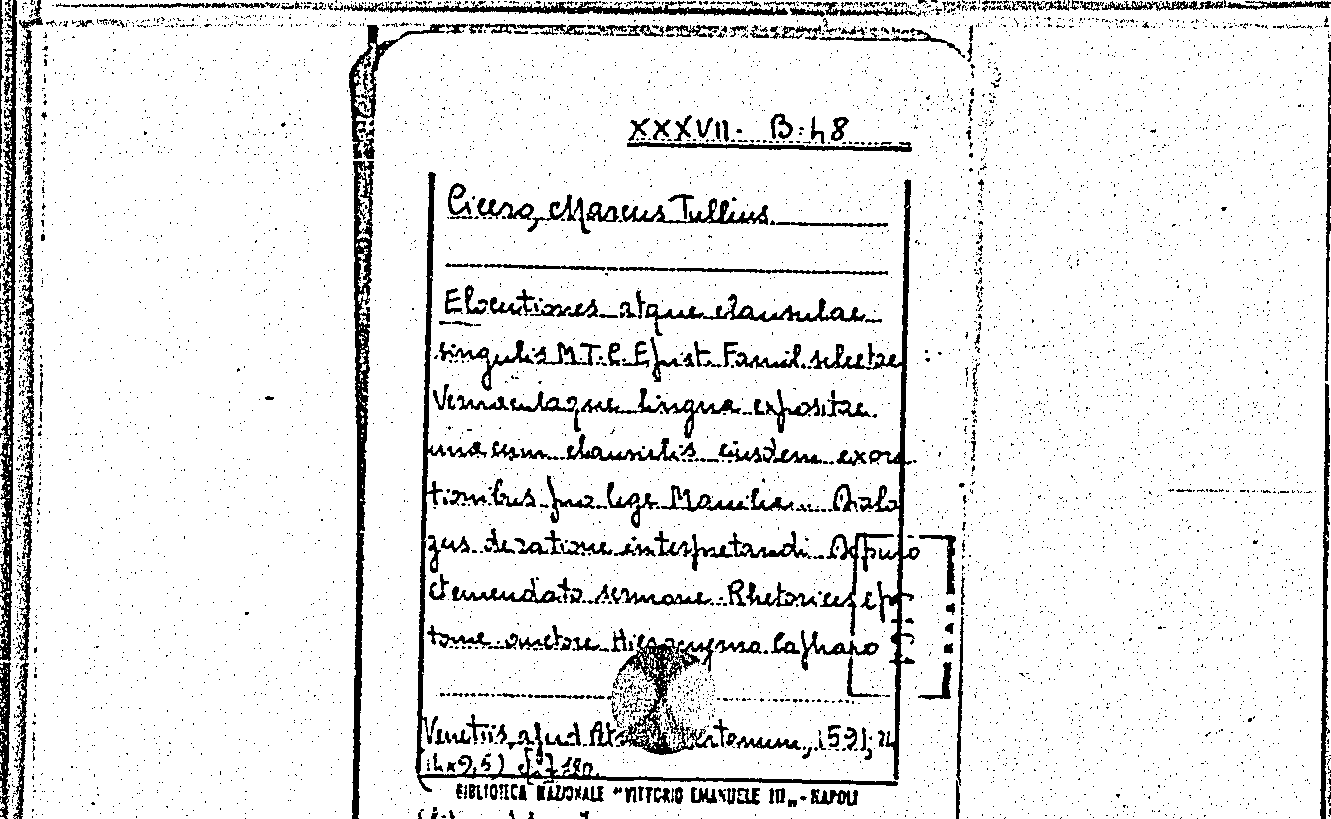 XXXVII. B. 48
Cicero, Marcus Tullius
Elocutiones atque clausulae
singulis M.T.C. Epist. Famil. selectae
Vernaculaque lingua expositae
una cum clausulis eiusdem ex ora
tionibus pro lege Manilia. Dialo
gus de ratione interpretandi. De puro
et emendato sermone. Rhetorices epi
tome auctore Hieronymo Capharo
Venetiis, apud 1591, 24
BIBLIOTECA NAZIONALE "VITTORIO EMANUELE III" - NAPOLI